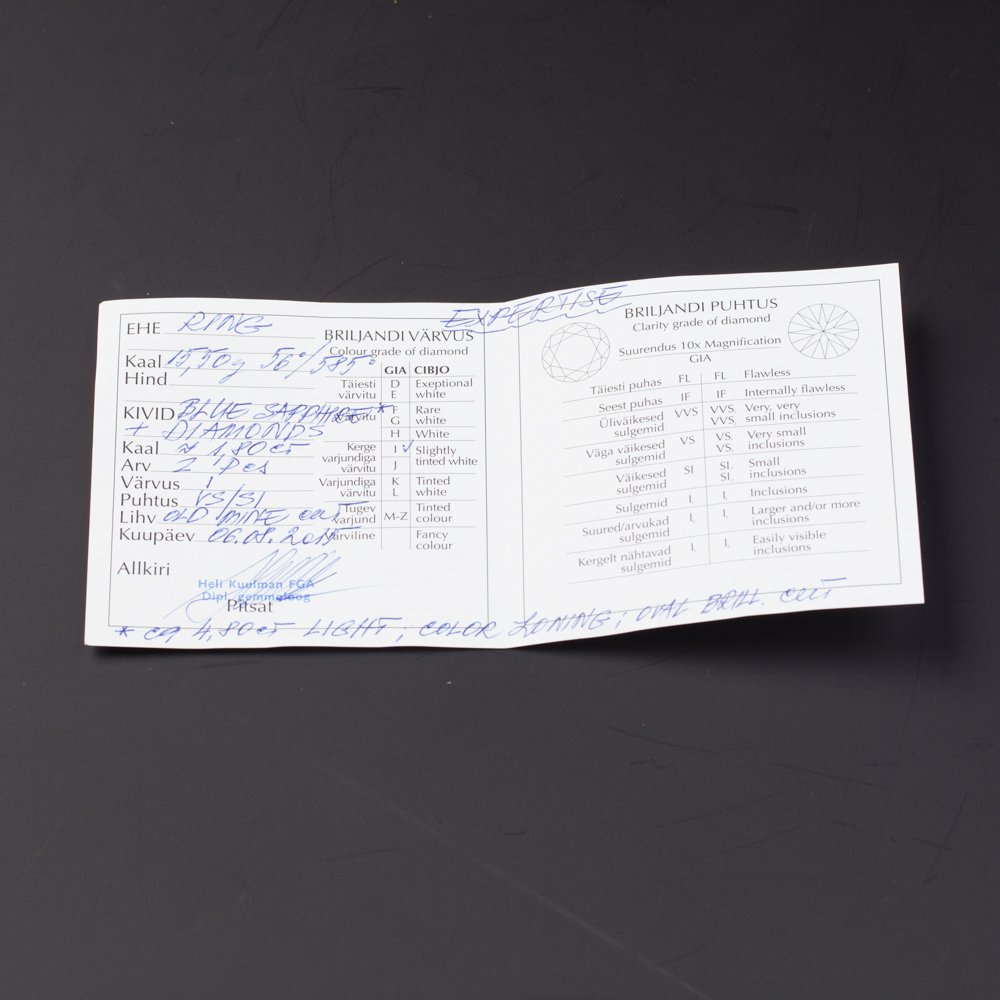 EXPERTISE
EHE RING
Kaal 15,50g 56°/585°
Hind
KIVID BLUE SAPPHIRE *
+ DIAMONDS
Kaal ≈ 1,80ct
Arv 2 pcs
Värvus I
Puhtus VS/SI
Lihv OLD MINE cut
Kuupäev 06.08.2015
Allkiri
Heli Kuulman FGA
Dipl. gemmoloog
Pitsat
BRILJANDI VÄRVUS
Colour grade of diamond
GIA CIBJO
Täiesti värvitu D E Exeptional white
Värvitu F G Rare white
H White
Kerge varjundiga värvitu I ✓ J Slightly tinted white
Varjundiga värvitu K L Tinted white
Tugev varjund M-Z Tinted colour
Värviline Fancy colour
* ca 4,80ct LIGHT; COLOR ZONING; OVAL BRILL. cut
BRILJANDI PUHTUS
Clarity grade of diamond
Suurendus 10x Magnification
GIA
Täiesti puhas FL FL Flawless
Seest puhas IF IF Internally flawless
Üliväikesed sulgemid VVS VVS₁ VVS₂ Very, very small inclusions
Väga väikesed sulgemid VS VS₁ VS₂ Very small inclusions
Väikesed sulgemid SI SI₁ SI₂ Small inclusions
Sulgemid I₁ I₁ Inclusions
Suured/arvukad sulgemid I₂ I₂ Larger and/or more inclusions
Kergelt nähtavad sulgemid I₃ I₃ Easily visible inclusions